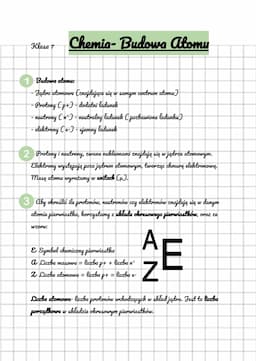 Klasa 7
Chemia- Budowa Atomu
1 Budowa atomu:
- Jądro atomowe (znajdujące się w samym centrum atomu)
- Protony (p+) - dodatni ładunek
- neutrony (n°) - neutralny ładunek (pozbawione ładunku)
- elektrony (e-) - ujemny ładunek
2 Protony i neutrony, zwane nukleonami znajdują się w jądrze atomowym.
Elektrony występują poza jądrem atomowym, tworząc chmurę elektronową.
Masę atomu wyrażamy w unitach (u).
3 Aby określić ile protonów, neutronów czy elektronów znajduje się w danym
atomie pierwiastka, korzystamy z układu okresowego pierwiastków, oraz ze
wzoru:
E- Symbol chemiczny pierwiastka
A- Liczba masowa = liczba p+ + liczba n°
Z- Liczba atomowa = liczba p+ = liczba e-
A
Z
E
Liczba atomowa- liczba protonów wchodzących w skład jądra. Jest to liczba
porządkowa w układzie okresowym pierwiastków.